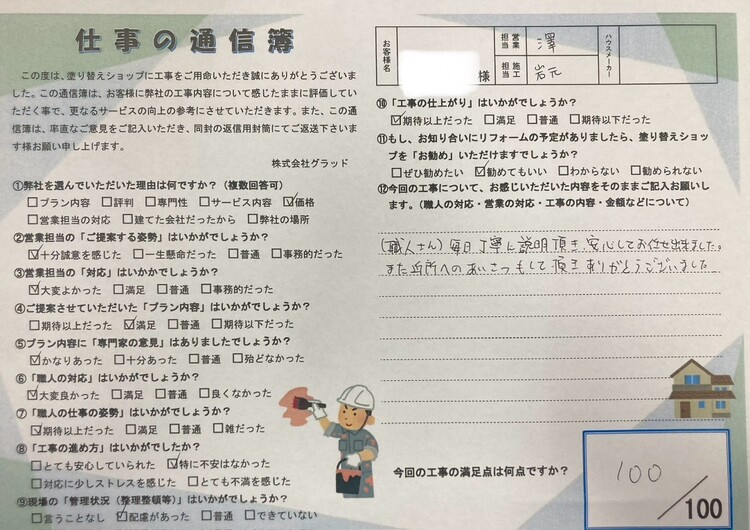 仕事の通信簿
この度は、塗り替えショップに工事をご用命いただき誠にありがとうございま
した。この通信簿は、お客様に弊社の工事内容について感じたままに評価してい
ただく事で、更なるサービスの向上の参考にさせていただきます。また、この通
信簿は、率直なご意見をご記入いただき、同封の返信用封筒にてご返送下さいま
す様お願い申し上げます。
株式会社グラッド
①弊社を選んでいただいた理由は何ですか？（複数回答可）
□プラン内容 □評判 □専門性 □サービス内容 ☑価格
□営業担当の対応 □建てた会社だったから □弊社の場所
②営業担当の「ご提案する姿勢」はいかがでしょうか？
☑十分誠意を感じた □一生懸命だった □普通 □事務的だった
③営業担当の「対応」はいかかでしょうか？
☑大変よかった □満足 □普通 □事務的だった
④ご提案させていただいた「プラン内容」はいかがでしょうか？
□期待以上だった ☑満足 □普通 □期待以下だった
⑤プラン内容に「専門家の意見」はありましたでしょうか？
☑かなりあった □十分あった □普通 □殆どなかった
⑥「職人の対応」はいかがでしょうか？
☑大変良かった □満足 □普通 □良くなかった
⑦「職人の仕事の姿勢」はいかがでしょうか？
☑期待以上だった □満足 □普通 □雑だった
⑧「工事の進め方」はいかがでしたか？
□とても安心していられた ☑特に不安はなかった
□対応に少しストレスを感じた □とても不満を感じた
⑨現場の「管理状況（整理整頓等）」はいかがでしょうか？
□言うことなし ☑配慮があった □普通 □できていない
お客様名 様
営業担当 澤
施工担当 岩元
ハウスメーカー
⑩「工事の仕上がり」はいかがでしょうか？
☑期待以上だった □満足 □普通 □期待以下だった
⑪もし、お知り合いにリフォームの予定がありましたら、塗り替えショッ
プを「お勧め」いただけますでしょうか？
□ぜひ勧めたい ☑勧めてもいい □わからない □勧められない
⑫今回の工事について、お感じいただいた内容をそのままご記入お願いし
ます。（職人の対応・営業の対応・工事の内容・金額などについて）
(職人さん) 毎日丁寧に説明頂き、安心してお任せ出来ました。
また近所へのあいさつもして頂きありがとうございました
今回の工事の満足点は何点ですか？
100
/100